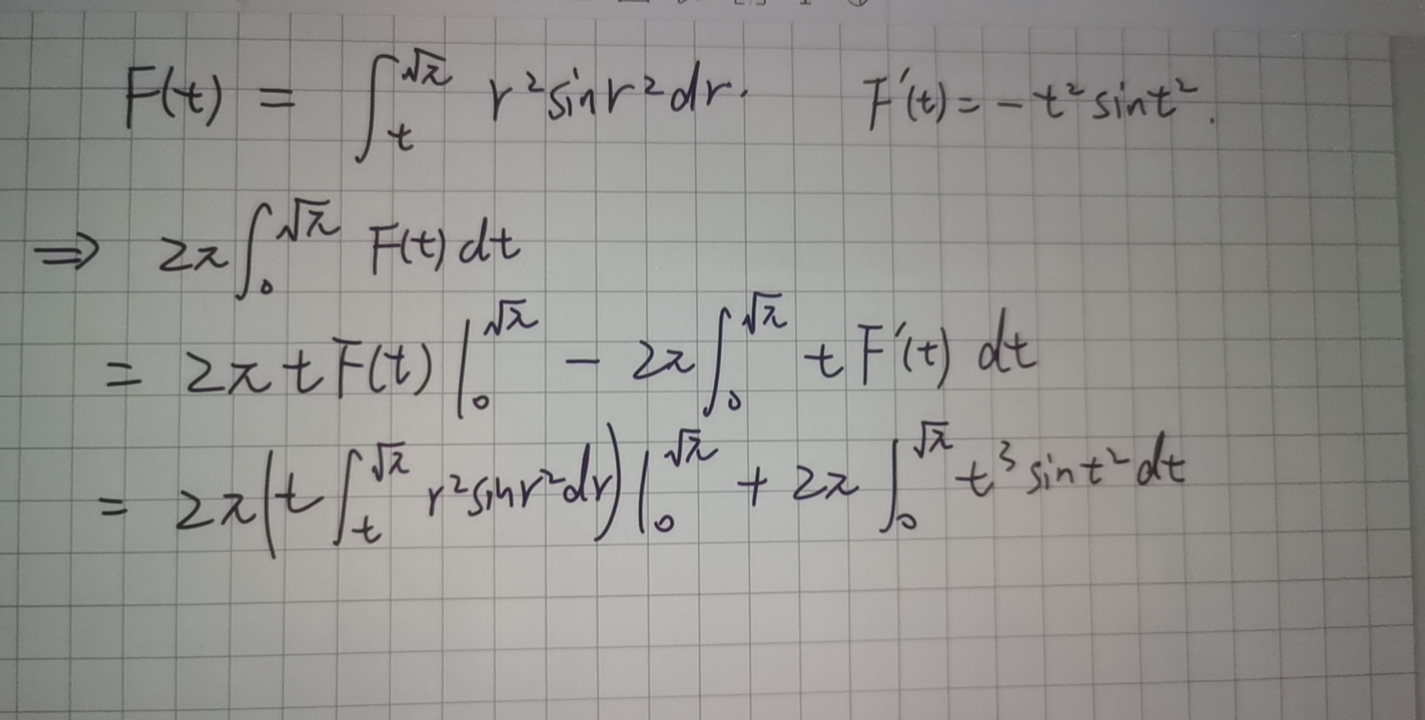 F(t) = ∫_t^{√π} r² sin r² dr. F′(t) = - t² sin t².
⇒ 2π ∫_0^{√π} F(t) dt
= 2π t F(t) |_0^{√π} - 2π ∫_0^{√π} t F′(t) dt
= 2π (t ∫_t^{√π} r² sin r² dr) |_0^{√π} + 2π ∫_0^{√π} t³ sin t² dt